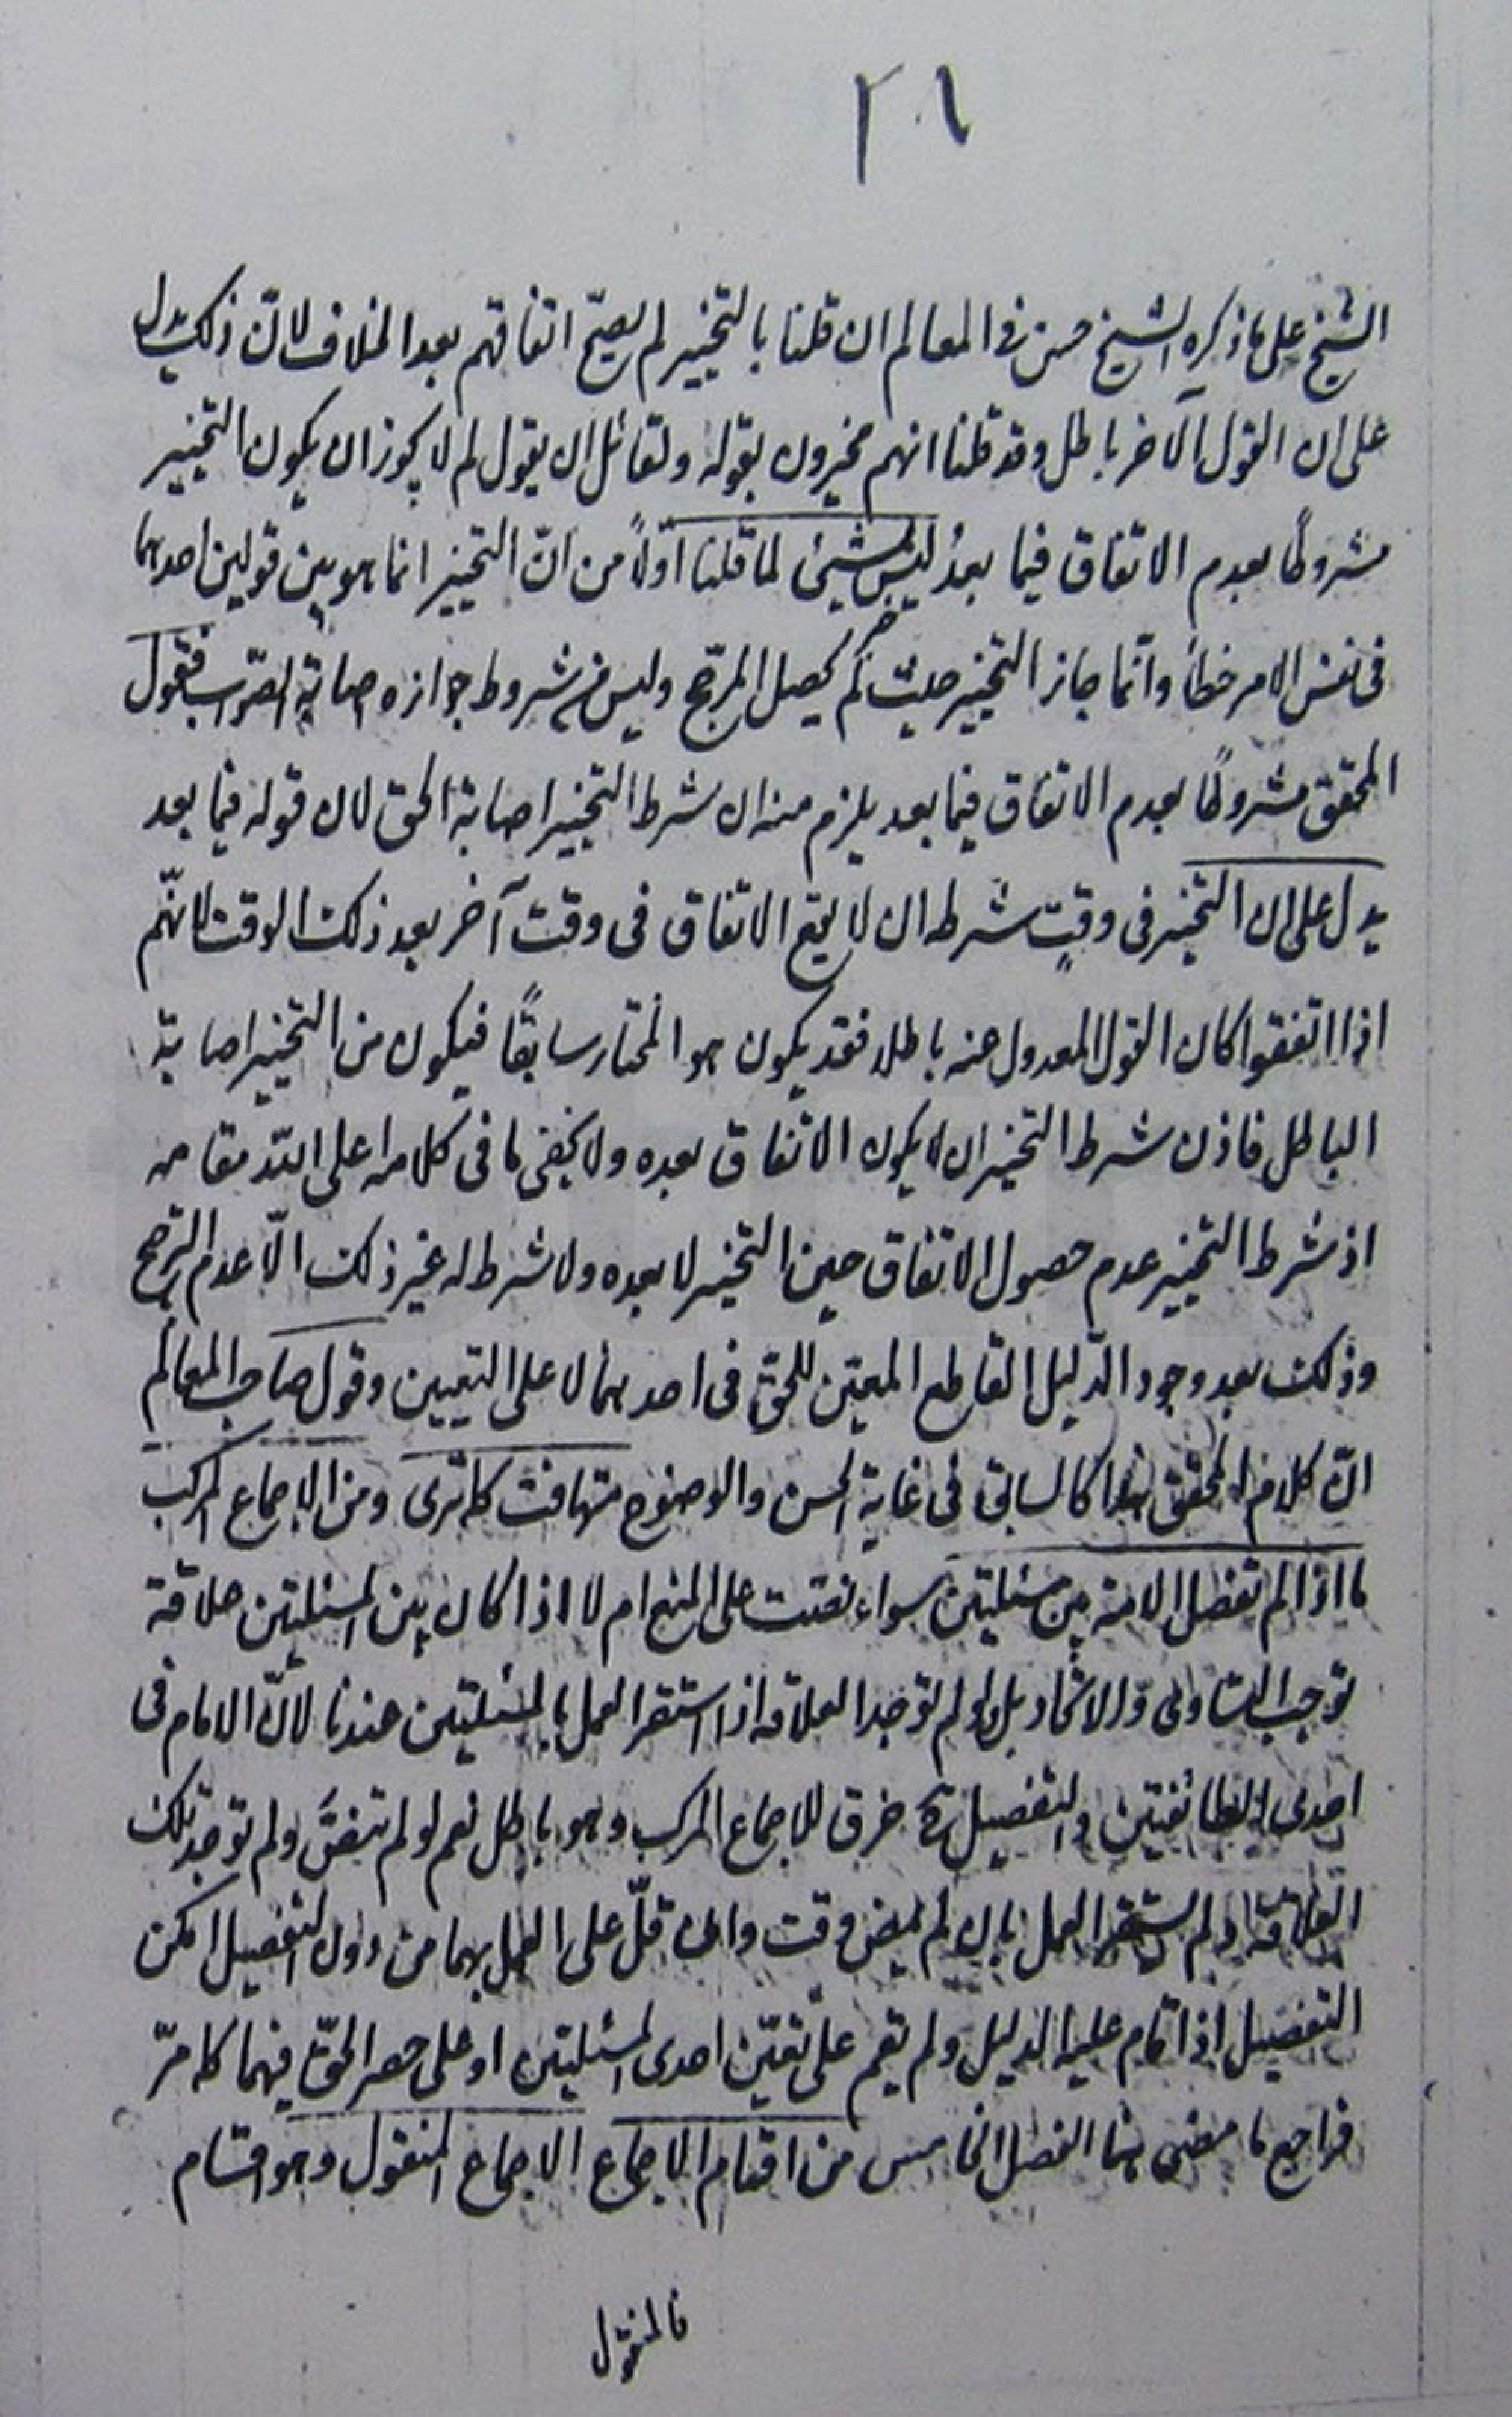 ٢٠١
الشيخ على ما ذكره الشيخ حسن فى المعالم ان قلنا بالتخيير لم يصحّ اتفاقهم بعد الخلاف لانّ ذلك يدل
على ان القول الآخر باطل وقد قلنا انهم مخيرون بقوله ولقائل ان يقول لم لا يجوز ان يكون التخيير
مشروطًا بعدم الاتفاق فيما بعد ليس بشيئ لما قلنا اوّلاً من انّ التخيير انما هو بين قولين احدهما
فى نفس الامر خطأ وانّما جاز التخيير حيث لم يحصل المرجّح وليس من شروط جوازه اصابة الصّواب فقول
المحقق مشروطًا بعدم الاتفاق فيما بعد يلزم منه ان شرط التخيير اصابة الحق لان قوله فيما بعد
يدل على ان التخيير فى وقتٍ شرطه ان لا يقع الاتفاق فى وقت آخر بعد ذلك الوقت لانّهم
اذا اتفقوا كان القول المعدول عنه باطلا فقد يكون هو المختار سابقًا فيكون من التخيير اصابة
الباطل فاذن شرط التخيير ان لا يكون الاتفاق بعده ولا يخفى ما فى كلامه اعلى اللّه مقامه
اذ شرط التخيير عدم حصول الاتفاق حين التخيير لا بعده ولا شرط له غير ذلك الّا عدم الترجيح
وذلك بعد وجود الدّليل القاطع المعيّن للحقّ فى احدهما لا على التعيين وقول صاحب المعالم
انّ كلام المحقق هذا كالسابق فى غاية الحسن والوضوح متهافت كما ترى ومن الاجماع المركب
ما اذا لم تفصل الامة بين مسئلتين سواء نصّت على المنع ام لا اذا كان بين المسئلتين علاقة
توجب التساوى والاتحاد بل ولو لم توجد العلاقه اذا استقر العمل بالمسئلتين عندنا لانّ الامام فى
احدى الطائفتين والتفصيل ح خرق للاجماع المركب وهو باطل نعم لو لم تنصّ ولم توجد تلك
العلاقة ولم يستقر العمل بان لم يمض وقت وان قلّ على العمل بهما من دون التفصيل امكن
التفصيل اذا قام عليه الدليل ولم يقم على تعيّن احدى المسئلتين او على حصر الحقّ فيهما كما مرّ
فراجع ما مضى هنا الفصل الخامس من اقسام الاجماع الاجماع المنقول وهو اقسام
فالمنقول